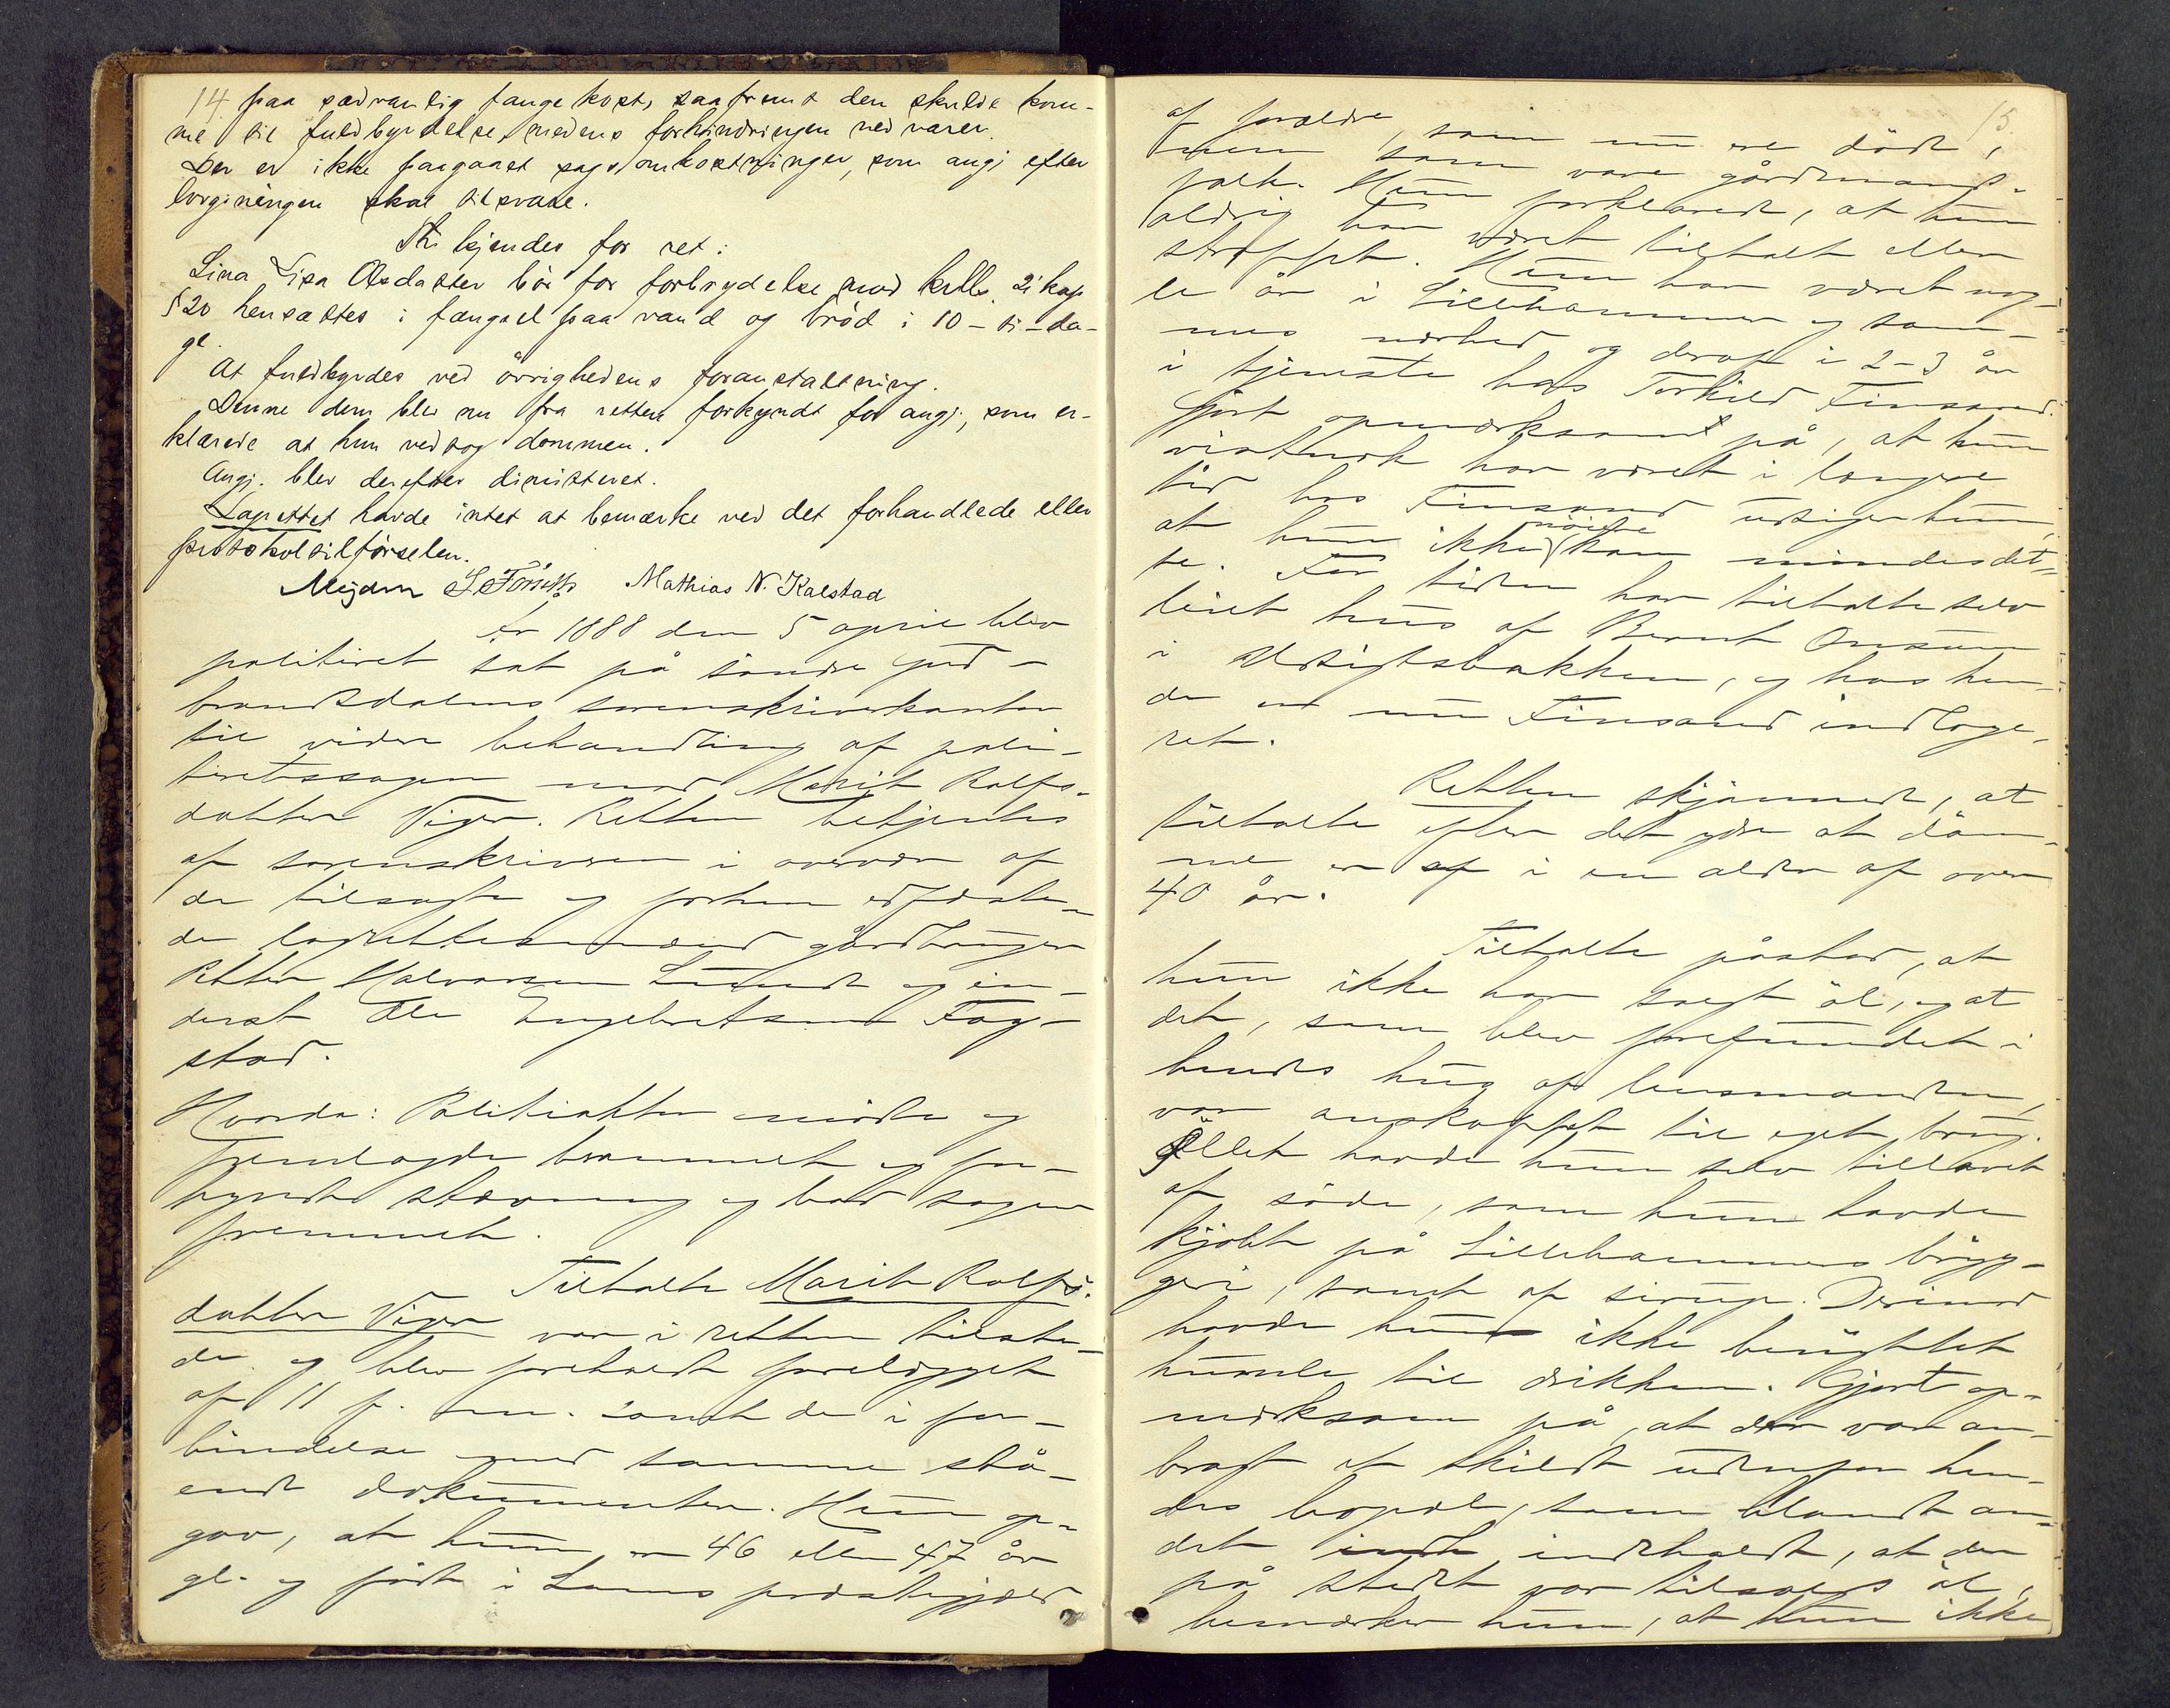 14 paa sædvanlig fangekost, saafremt den skulde kom-
me til fuldbyrdelse, medens forhindringen vedvarer.
Der er ikke paagaaet sagsomkostninger, som angj efter
lovgivningen skal tilsvare.
Thi kjendes for ret:
Lina Lisa Olsdatter bör for forbrydelse mod krlb. 21 kap
§20 hensættes i fængsel paa vand og bröd i 10 – ti – da-
ge.
At fuldbyrdes ved övrighedens foranstaltning.
Denne dom blev nu fra retten forkyndt for angj., som er-
klærede at hun vedtog dommen.
Angj. blev derefter dimitteret.
Lagrettet havde intet at bemærke ved det forhandlede eller
protokoltilförselen.
Mejdem Mathias N. Kalstad
År 1888 den 5 april blev
politiret sat på söndre Gud-
brandsdalens sorenskriverkontor
til videre behandling af poli-
tiretssagen mod Marit Rolfs-
datter Viger. Retten betjentes
af sorenskriveren i overvær af
de tilsagte og forhen edfæste-
de lagrettesmænd gårdbruger
Petter Halvorsen Lunde og in-
derst Ole Engebretsen Fåg-
stad.
Hvorda: Politiakter mödte og
fremlagde berammet og for-
kyndt stævning og bad sagen
fremmet.
Tiltalte Marit Rolfs-
datter Viger var i retten tilste-
de og blev foreholdt forelægget
af 11 f. m. samt de i for-
bindelse med samme stå-
ende dokumenter. Hun op-
gav, at hun er 46 eller 47 år
gl. og födt i Loms præstegjeld
15.
af forældre, som nu ere döde,
men som vare gårdmands-
folk. Hun forklarede, at hun
aldrig har været tiltalt eller
straffet. Hun har været nog-
le år i Lillehammer og sam-
mes nærhed og deraf i 2–3 år
i tjeneste hos Torkild Finsand.
Gjort opmærksom på, at hun
vistnok har været i længere
tid hos Finsand udsiger hun,
at hun ikke nöie kan mindes det-
te. For tiden har tiltalte selv
leiet hus af Bernt Onsum
i Udsigtsbakken, og hos hen-
de er nu Finsand indloge-
ret.
Retten skjönnede, at
tiltalte efter det ydre at döm-
me er i en alder af over
40 år.
Tiltalte påstod, at
hun ikke har solgt öl, og at
det, som blev forefundet i
hendes hus af lensmanden,
var anskaffet til eget brug.
Öllet havde hun selv tillavet
af söde, som hun havde
kjöbt på Lillehammers brygg-
geri, samt af sirup. Derimod
havde hun ikke benyttet
humle til drikken. Gjort op-
mærksom på, at der var an-
bragt et skildt udenfor hen-
des bopæl, som blandt an-
det indeholdt, at der
på stedet var tilsalgs öl,
bemærker hun, at hun ikke